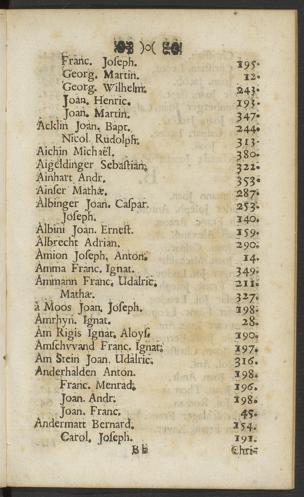 )o(
Franc. Joseph. 195.
Georg. Martin. 12.
Georg. Wilhelm. 243.
Joan. Henric. 193.
Joan. Martin. 347.
Acklin Joan. Bapt. 244.
Nicol. Rudolph. 313.
Aichin Michaël. 380.
Aigeldinger Sebastian. 322.
Ainhart Andr. 353.
Ainser Mathæ. 287.
Albinger Joan. Caspar. 253.
Joseph. 140.
Albini Joan. Ernest. 159.
Albrecht Adrian. 290.
Amion Joseph. Anton. 14.
Amma Franc. Ignat. 349.
Ammann Franc. Udalric. 211.
Mathæ. 327.
à Moos Joan. Joseph. 198.
Amrhyn. Ignat. 28.
Am Rigis Ignat. Aloys. 190.
Amschvvand Franc. Ignat. 197.
Am Stein Joan. Udalric. 316.
Anderhalden Anton. 198.
Franc. Menrad. 196.
Joan. Andr. 198.
Joan. Franc. 45.
Andermatt Bernard. 154.
Carol. Joseph. 191.
Bb Chri-